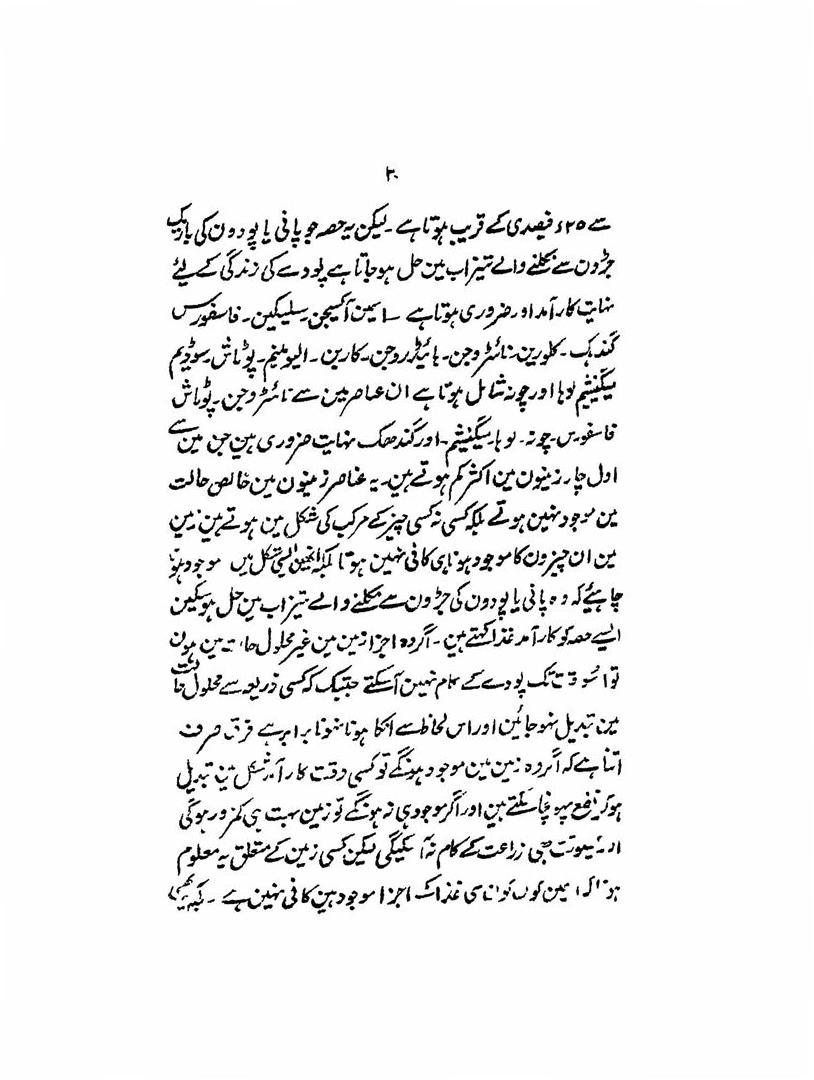 ۲۰
سے ۲۵ء فیصدی کے قریب ہوتا ہے ۔ لیکن یہ حصہ جو پانی یا پودون کی باریک
جڑون سے نکلنے والے تیزاب مین حل ہو جاتا ہے پودے کی زندگی کے لیئے
نہایت کارآمد اور ضروری ہوتا ہے ۔ اسمین آکسیجن ۔ سلیکین ۔ فاسفورس
گندہک ۔ کلورین ۔ نائٹروجن ۔ ہائیڈروجن ۔ کاربن ۔ الیومینم ۔ پوٹاش ۔ سوڈیم
میگنیشیم لوہا اور چونہ شامل ہوتا ہے ان عناصر مین سے نائٹروجن ۔ پوٹاش
فاسفورس ۔ چونہ ۔ لوہا ۔ میگنیشیم ۔ اور گندھک نہایت ضروری ہین جن مین سے
اول چار زمینون مین اکثر کم ہوتے ہین ۔ یہ عناصر زمینون مین خالص حالت
مین موجود نہین ہوتے بلکہ کسی نہ کسی چیز کے مرکب کی شکل مین ہوتے ہین زمین
مین ان چیزون کا موجود ہونا ہی کافی نہین ہوتا بلکہ انھین ایسی شکل میں موجود ہونا
چاہیئے کہ وہ پانی یا پودون کی جڑون سے نکلنے والے تیزاب مین حل ہو سکین
ایسے حصہ کو کارآمد غذا کہتے ہین ۔ اگر وہ اجزا زمین مین غیر محلول حالت مین ہون
تو اسوقت تک پودے کے کام نہین آسکتے جبتک کہ کسی ذریعہ سے محلول حالت
مین تبدیل نہو جائین اور اس لحاظ سے انکا ہونا نہونا برابر ہے فرق صرف
اتنا ہے کہ اگر وہ زمین مین موجود ہونگے تو کسی وقت کارآمد شکل مین تبدیل
ہو کر نفع پہونچا سکتے ہین اور اگر موجود ہی نہ ہونگے تو زمین بہت ہی کمزور ہوگی
اور صورت جبی زراعت کے کام نہ آسکیگی لیکن کسی زمین کے متعلق یہ معلوم
ہونا کہ اسمین کون کونسی غذا کے اجزا موجود ہین کافی نہین ہے ۔ بلکہ یہ بھی